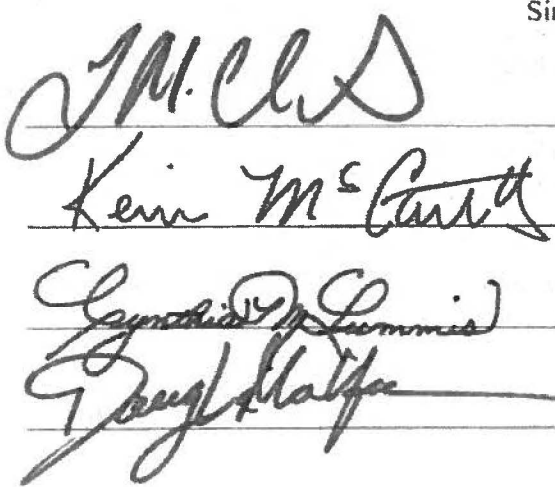 Sin
T M. Cl
Kevin McCarthy
Cynthia M Lummis
Doug LaMalfa